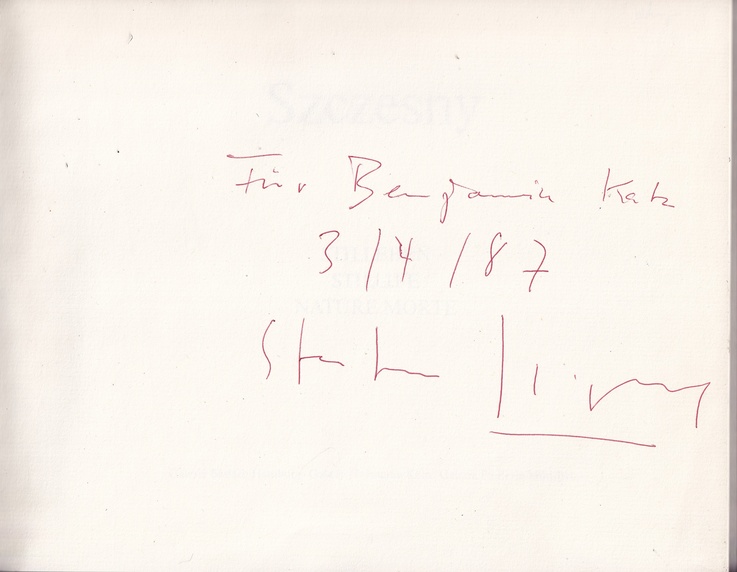 Szczesny
Für Benjamin Katz
3/4/87
STILLEBEN
STILL LIFE
NATURE MORTE
Stefan